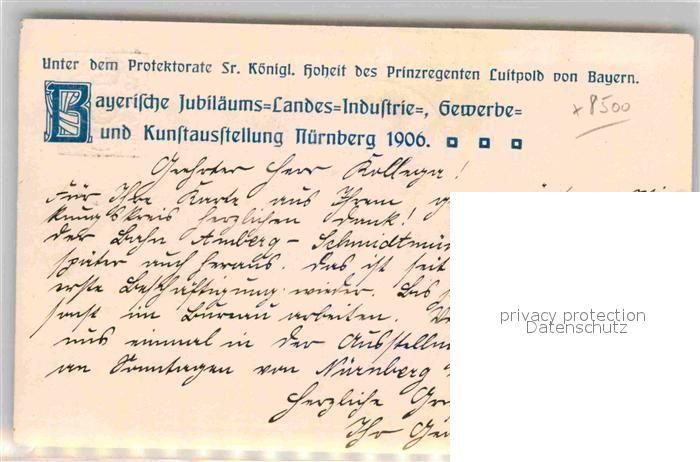 Unter dem Protektorate Sr. Königl. Hoheit des Prinzregenten Luitpold von Bayern.
Bayerische Jubiläums=Landes=Industrie=, Gewerbe=
und Kunstausstellung Nürnberg 1906.
x 8500
Geehrter Herr Kollega!
Für Ihre Karte aus Ihrem
kungskreis herzlichen Dank!
der Bahn Amberg - Schmidtmü
später auch heraus. Das ist seit
erste Beschäftigung wieder. Bis
sonst im Bureau arbeiten.
uns einmal in der Ausstellun
an Sonntagen von Nürnberg
Herzliche Gr
Ihr
privacy protection
Datenschutz